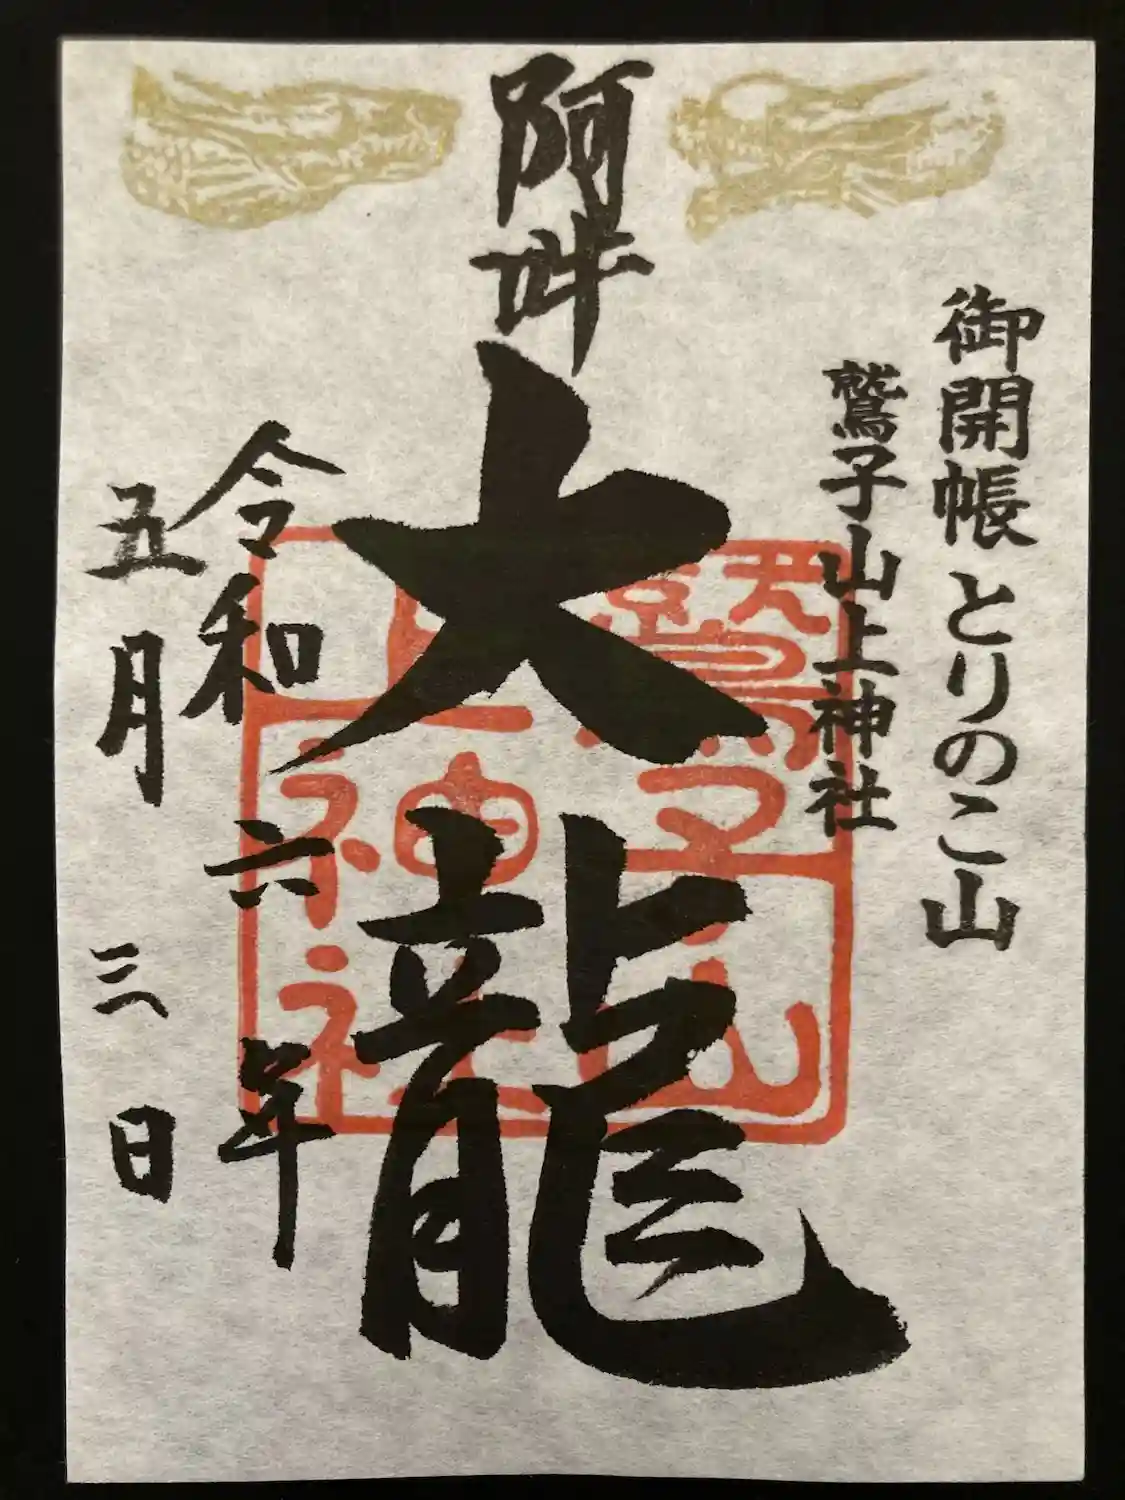 御開帳 とりのこ山
鷲子山上神社
阿吽
大龍
令和六年
五月三日